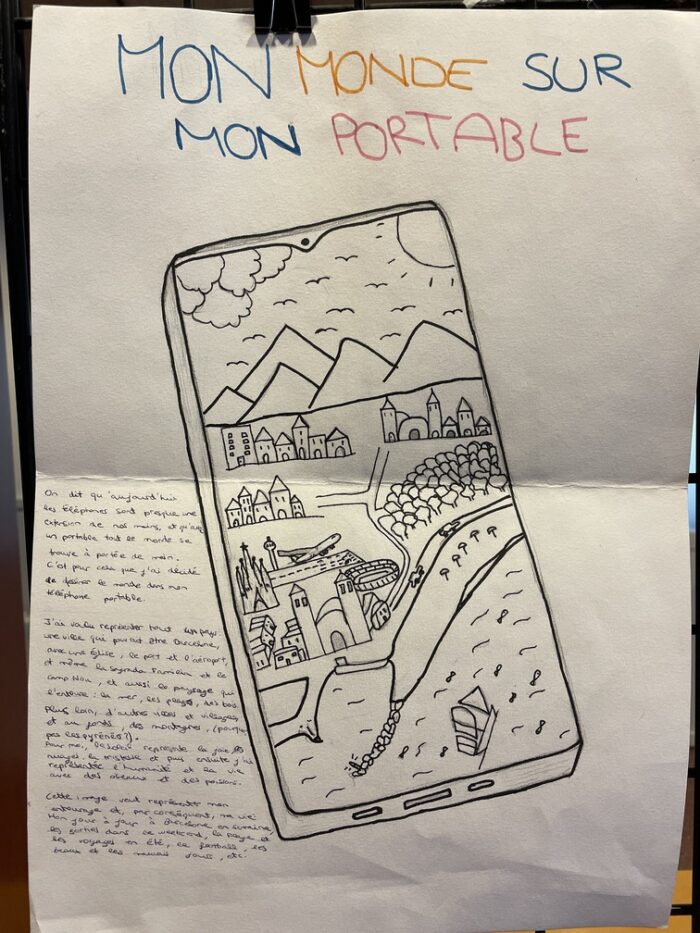 MON MONDE SUR
MON PORTABLE
On dit qu'aujourd'hui
les téléphones sont presque une
extension de nos mains, et qu'avec
un portable tout le monde se
trouve à portée de main.
C'est pour cela que j'ai décidé
de dessiner le monde dans mon
téléphone portable.
J'ai voulu représenter tout un pays:
une ville qui pourrait être Barcelone,
avec une église, le port et l'aéroport,
et même la Sagrada Familia et le
Camp Nou, et aussi le paysage qui
l'entoure: la mer, les plages, des bois,
plus loin, d'autres villes et villages,
et au fond, des montagnes, (pourquoi
pas les pyrénées?).
Pour moi, le soleil représente la joie, les
nuages, la tristesse et puis ensuite j'ai
représentée l'humanité et la vie
avec des oiseaux et des poissons.
Cette image veut représenter mon
entourage et, par conséquent, ma vie:
Mon jour à jour à Barcelone en semaine,
les sorties dans ce weekend, la plage et
les voyages en été, le football, les
beaux et les mauvais jours, etc.